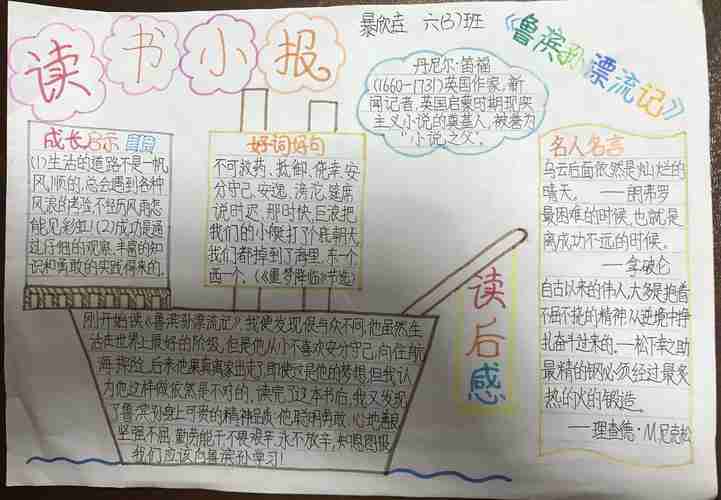 读书小报
暴欣垚 六(3)班
《鲁滨孙漂流记》
丹尼尔·笛福
(1660-1731)英国作家,新
闻记者,英国启蒙时期现实
主义小说的奠基人,被誉为
“小说之父”。
成长启示
(1)生活的道路不是一帆
风顺的,总会遇到各种
风浪的考验,不经历风雨怎
能见彩虹!(2)成功是通
过仔细的观察,丰富的知
识和勇敢的实践得来的。
好词好句
不可救药、抵御、侥幸、安
分守己、安逸、滂沱、筵席
说时迟、那时快,巨浪把
我们的小艇打了个底朝天,
我们都掉到了海里,东一个
西一个。(《噩梦降临》节选)
名人名言
乌云后面依然是灿烂的
晴天。——朗弗罗
最困难的时候,也就是
离成功不远的时候。
——拿破仑
自古以来的伟人,大多是抱着
不屈不挠的精神,从逆境中挣
扎奋斗过来的。——松下幸之助
最精的钢必须经过最炙
热的火的锻造。
——理查德·M.尼克松
读后感
刚开始读《鲁滨孙漂流记》,我便发现,他与众不同,他虽然生
活在世界上最好的阶级,但是他从小不喜欢安分守己,向往航
海探险,后来他果真离家出走了,即使这是他的梦想,但我认
为他这样做依然是不对的,读完了这本书后,我又发现
了鲁滨孙身上可贵的精神品质:他聪明勇敢,心地善良
坚强不屈,勤劳能干不畏艰辛,永不放弃,知恩图报,
我们应该向鲁滨孙学习!